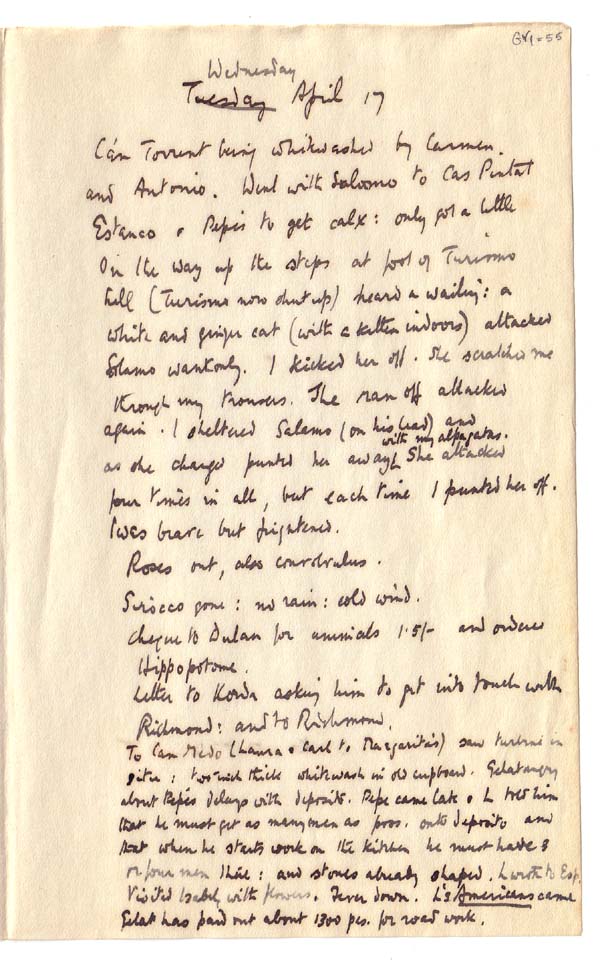 GV1=55
Wednesday
Tuesday April 17
Cán Torrent being whitewashed by Carmen.
and Antonio. Went with Solomo to Cas Pintat
Estanco & Pepe's to get calx: only got a little
On the way up the steps at foot of Turismo
hill (Turismo now shut up) heard a wailing: a
white and ginger cat (with a kitten indoors) attacked
Solamo wantonly. I kicked her off. She scratched me
through my trousers. She ran off attacked
again. I sheltered Salamo (on his lead) and
with my alpagatas.
as she charged punted her away. She attacked
four times in all, but each time I punted her off.
I was brave but frightened.
Roses out, also convolvulus.
Sirocco gone: no rain: cold wind.
Cheque to Dulau for animals 1.5/- and ordered
Hippopotome.
Letter to Korda asking him to get into touch with
Richmond: and to Richmond.
To Can Medo (Laura & Carl to Margarita's) saw turbine in
situ: two inch thick whitewash in old cupboard. Gelat angry
about Pepe's delays with deposito. Pepe came late & L told him
that he must get as many men as poss. onto deposito and
that when he starts work on the kitchen he must have 3
or four men there: and stones already shaped. L wrote to Esp.
Visited Isabel with flowers. Fever down. L's Americans came
Gelat has paid out about 1300 pes. for road work.